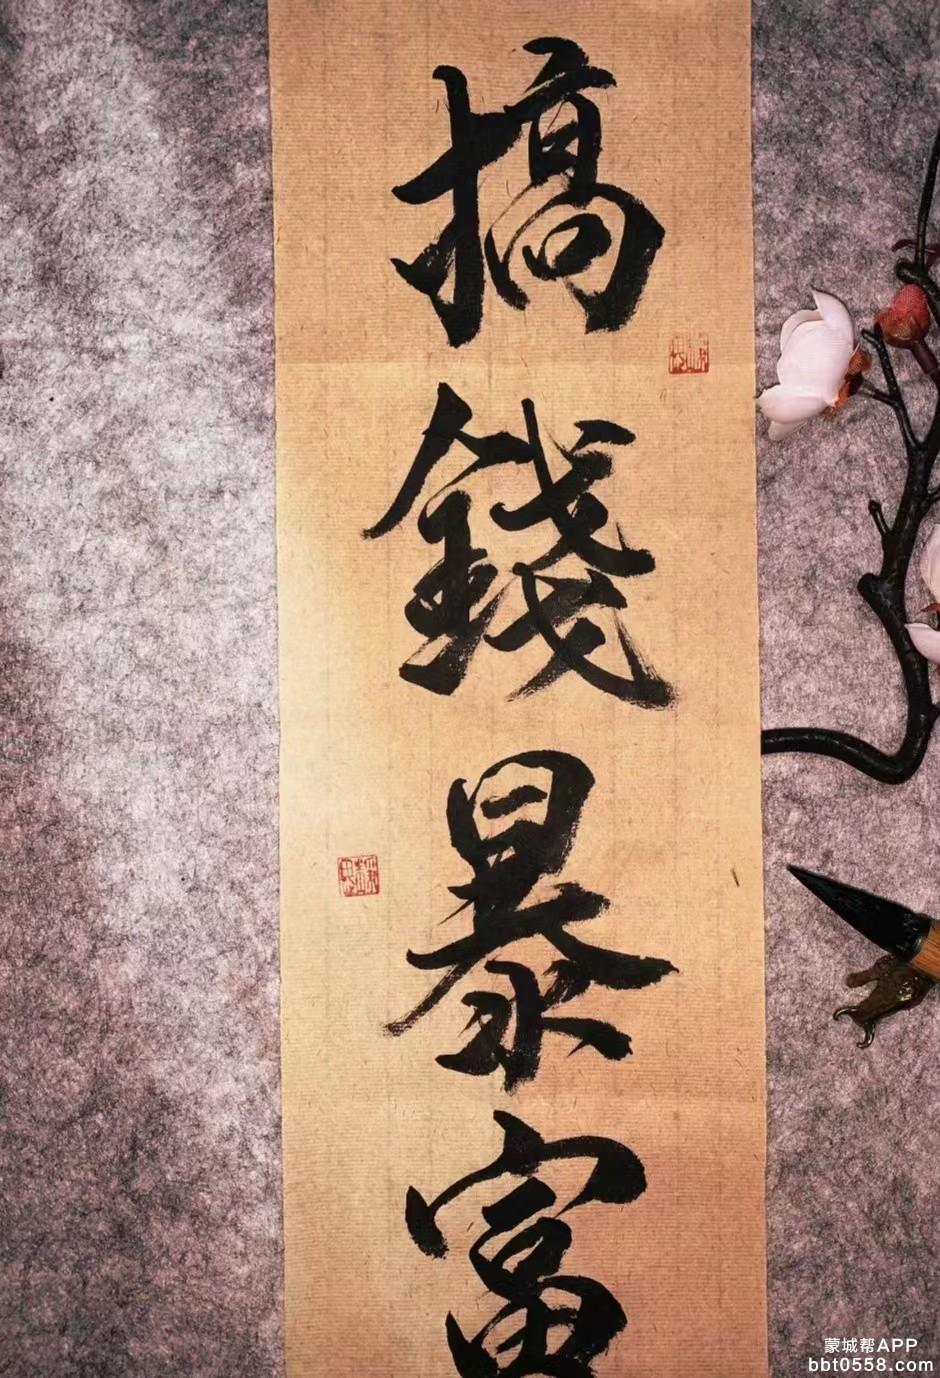 搞錢暴富
蒙城帮APP
bbt0558.com